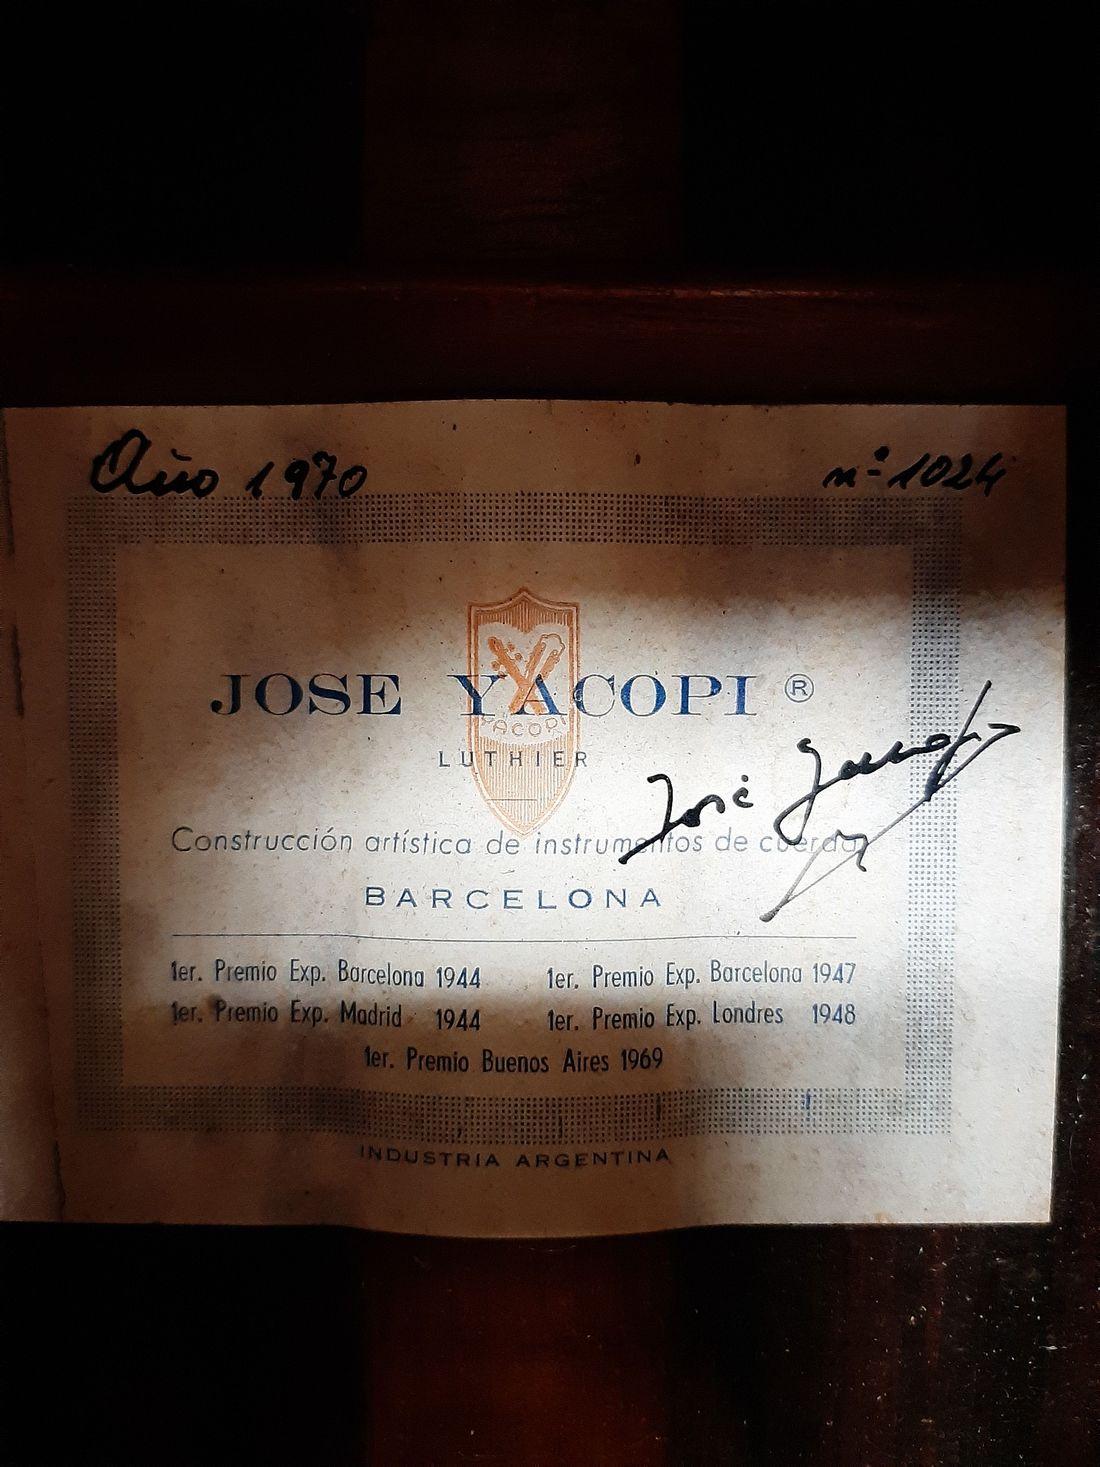 Año 1970 nº 1024
YACOPI
JOSE YACOPI ®
LUTHIER
José Yacopi
Construcción artística de instrumentos de cuerdas
BARCELONA
1er. Premio Exp. Barcelona 1944 1er. Premio Exp. Barcelona 1947
1er. Premio Exp. Madrid 1944 1er. Premio Exp. Londres 1948
1er. Premio Buenos Aires 1969
INDUSTRIA ARGENTINA